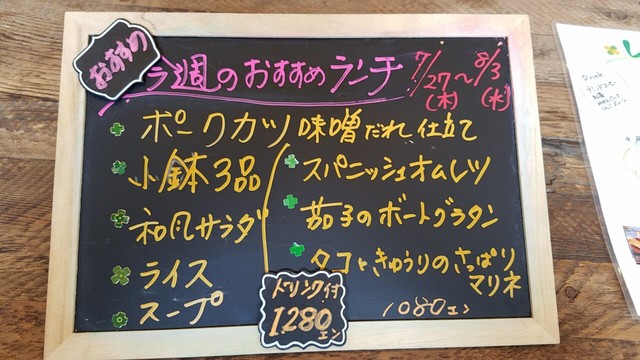 おすすめ
今週のおすすめランチ 7/27(木)～8/3(水)
ポークカツ味噌だれ仕立て
小鉢3品
和風サラダ
ライス
スープ
スパニッシュオムレツ
茄子のボートグラタン
タコときゅうりのさっぱり
マリネ
ドリンク付
1280エン
1080エン